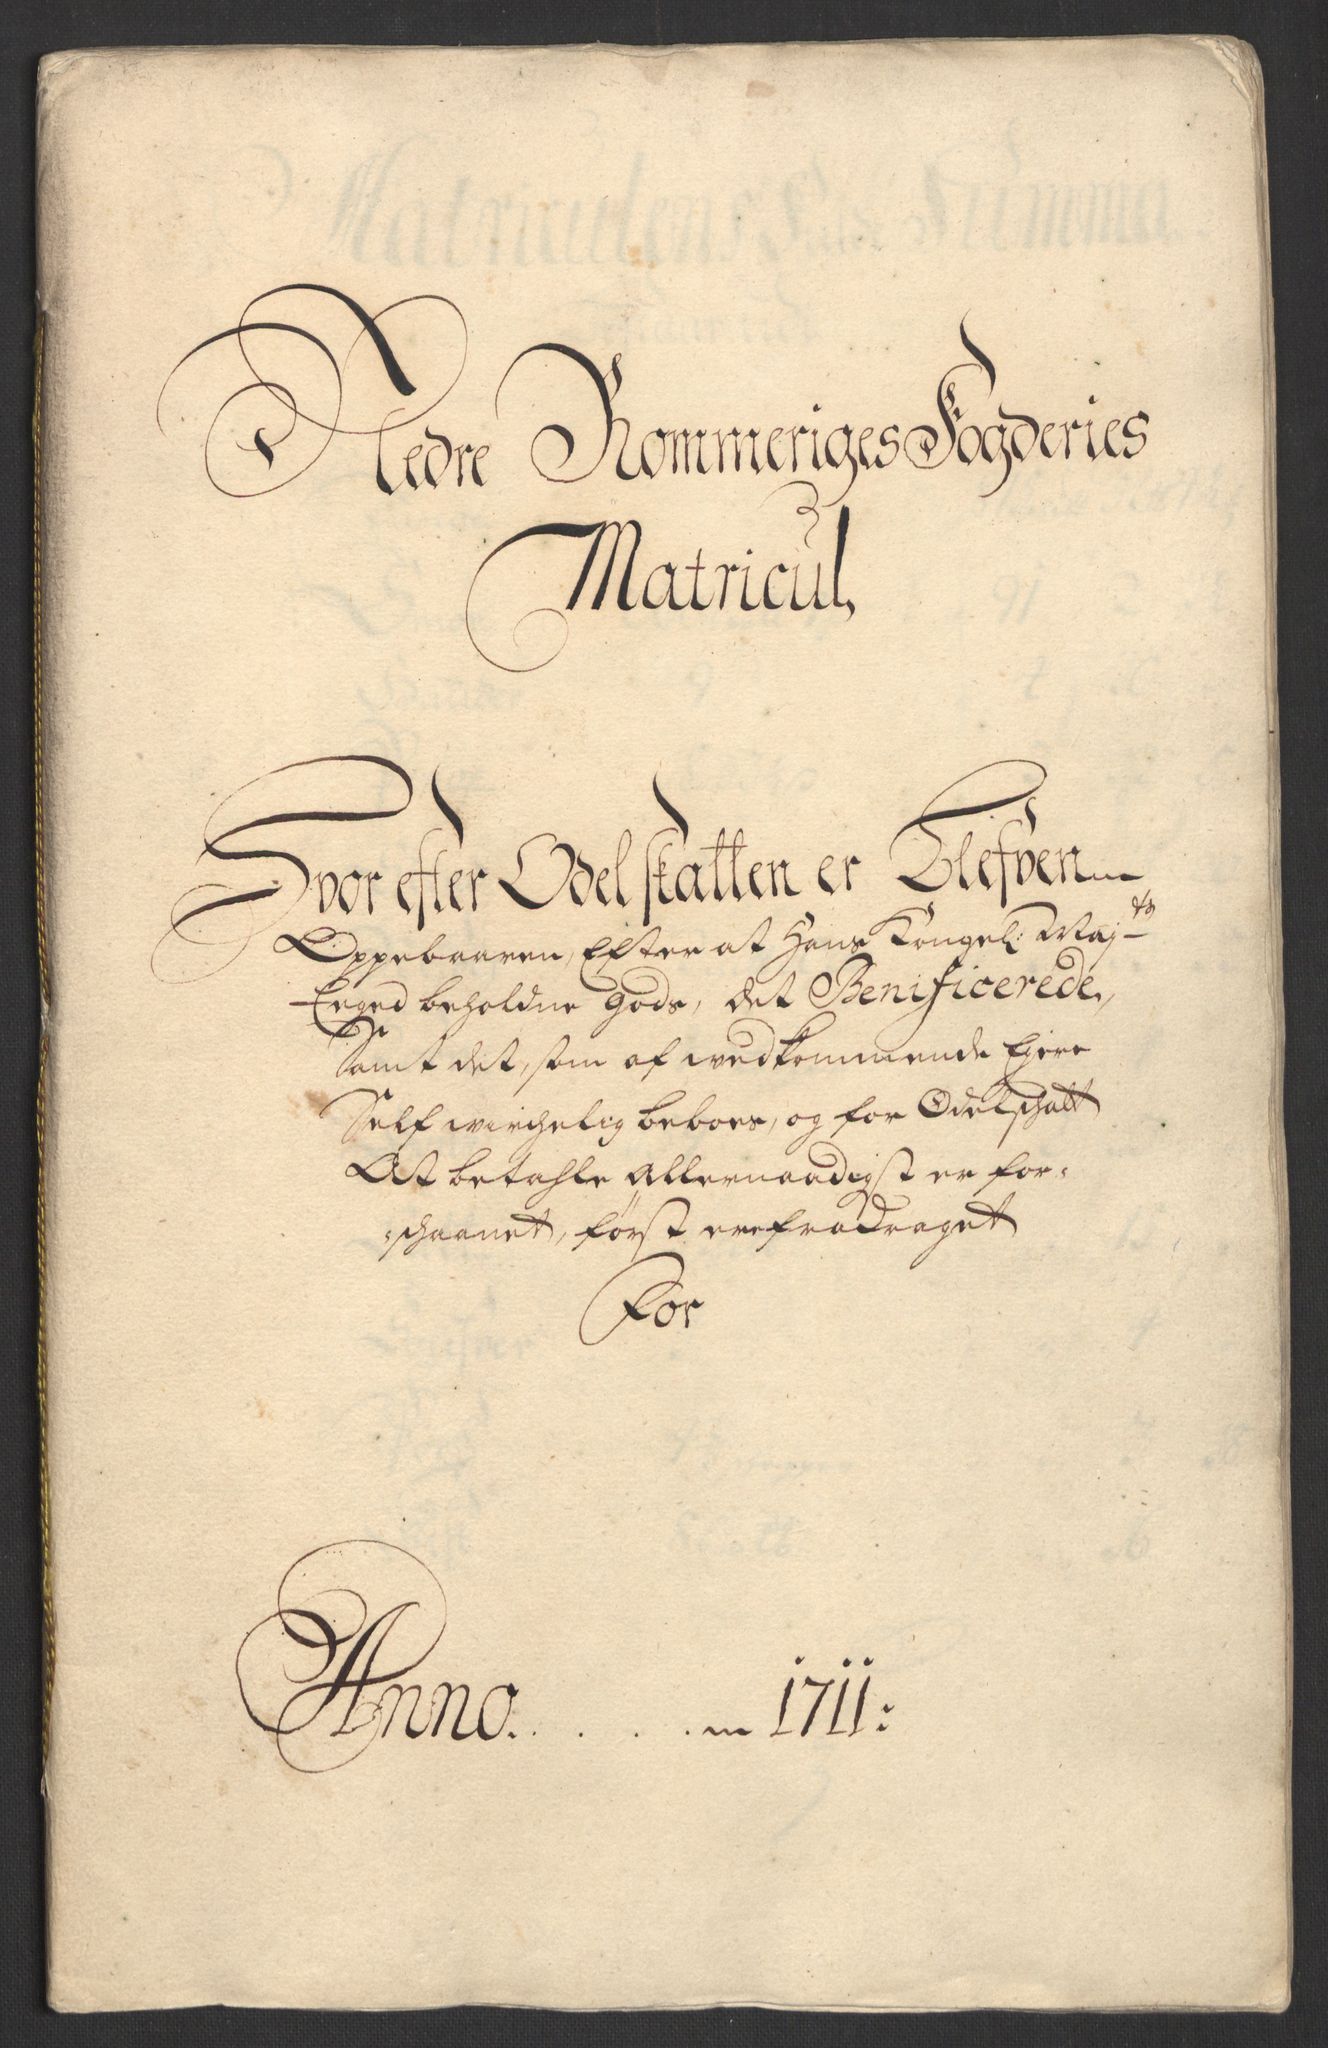 Nedre Rommeriges Fogderies
Matricul,
Hvor efter Odelskatten er Blefven
Oppebaaren, Efter at Hans Kongel: Maj:ts
Eeged beholdne Gods, det Benificerede,
Samt det, som af wedkommende Ejere
Self wirchelig beboes, og for Odelschatt
At betahle allernaadigst er for:
:schaanet, først ere fradraget
For
Anno. . . . . . 1711: